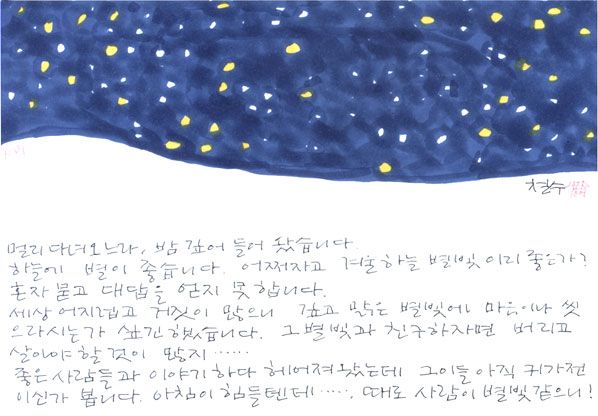 철수
멀리 다녀오느라, 밤 깊어 들어 왔습니다.
하늘에 별이 좋습니다. 어쩌자고 겨울하늘 별빛 이리 좋은가?
혼자 묻고 대답을 얻지 못합니다.
세상 어지럽고 거짓이 많으니 깊고 맑은 별빛에 마음이나 씻
으라시는가 싶긴했습니다. 그별빛과 친구하자면 버리고
살아야 할것이 많지 ······
좋은 사람들과 이야기하다 헤어져 왔는데 그이들 아직 귀가전
이신가 봅니다. 아침이 힘들텐데 ······. 때로 사람이 별빛 같으니!